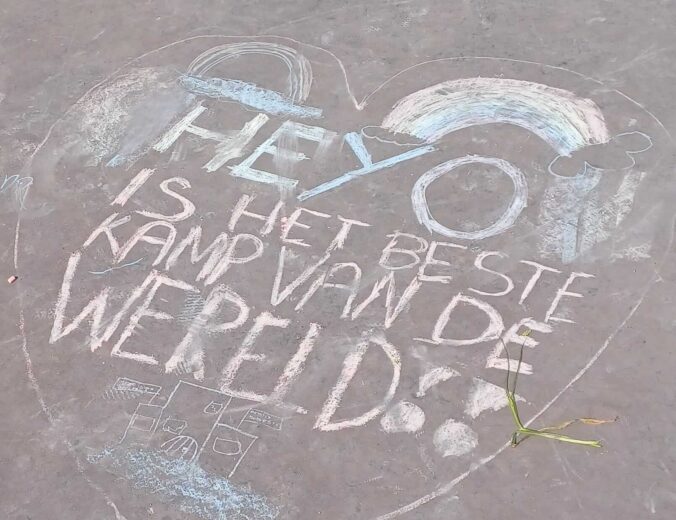 HEYO
IS HET BESTE
KAMP VAN DE
WERELD!!